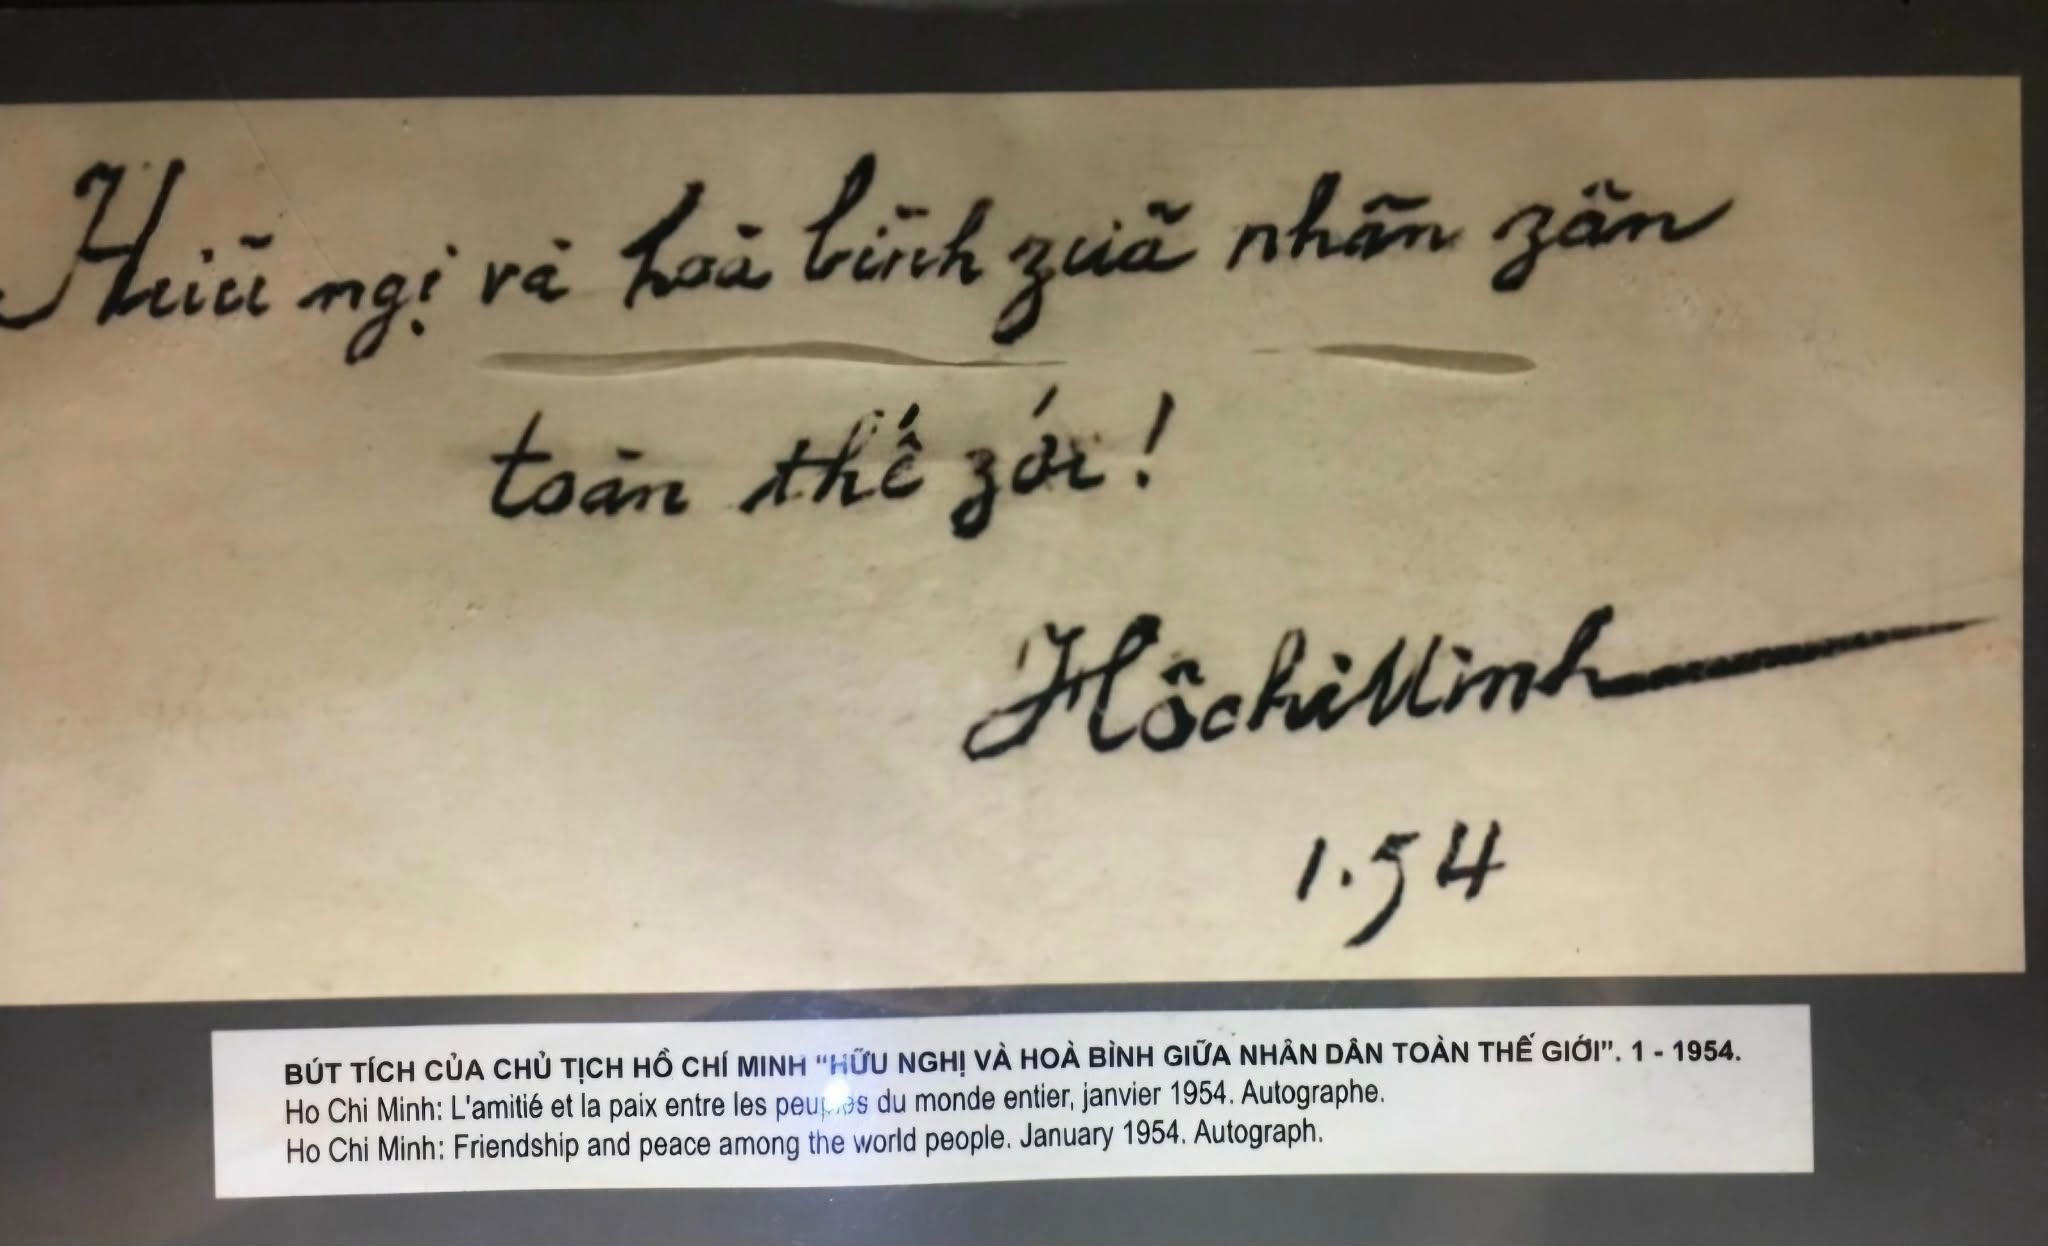 Hữu ngị và hoà bình zuã nhân zân
toàn thế zới!
Hồ chí Minh
1.54
BÚT TÍCH CỦA CHỦ TỊCH HỒ CHÍ MINH “HỮU NGHỊ VÀ HOÀ BÌNH GIỮA NHÂN DÂN TOÀN THẾ GIỚI”. 1 - 1954.
Ho Chi Minh: L'amitié et la paix entre les peuples du monde entier, janvier 1954. Autographe.
Ho Chi Minh: Friendship and peace among the world people. January 1954. Autograph.